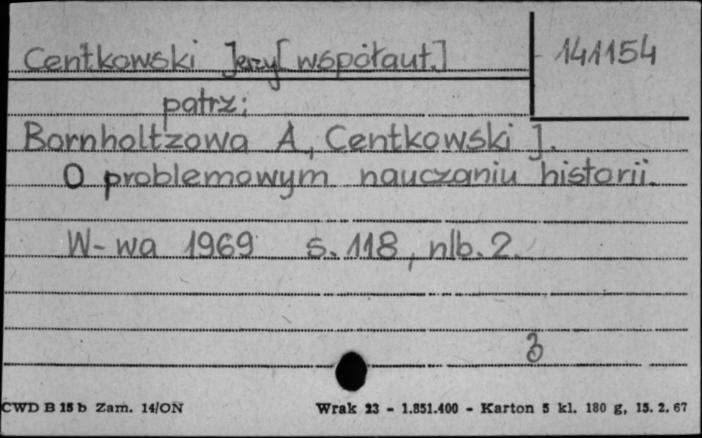 Centkowski Jerzy [współaut.] 141154
patrz;
Bornholtzowa A., Centkowski J.
O problemowym nauczaniu historii.
W-wa 1969 s. 118, nlb. 2.
CWD B 15 b Zam. 14/ON Wrak 23 - 1.851.400 - Karton 5 kl. 180 g, 15. 2. 67